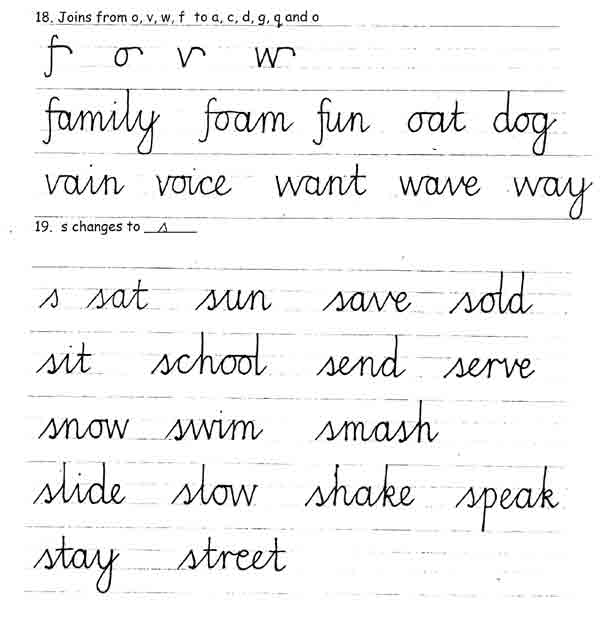 18. Joins from o, v, w, f to a, c, d, g, q and o
f o v w
family foam fun oat dog
vain voice want wave way
19. s changes to s
s sat sun save sold
sit school send serve
snow swim smash
slide slow shake speak
stay street